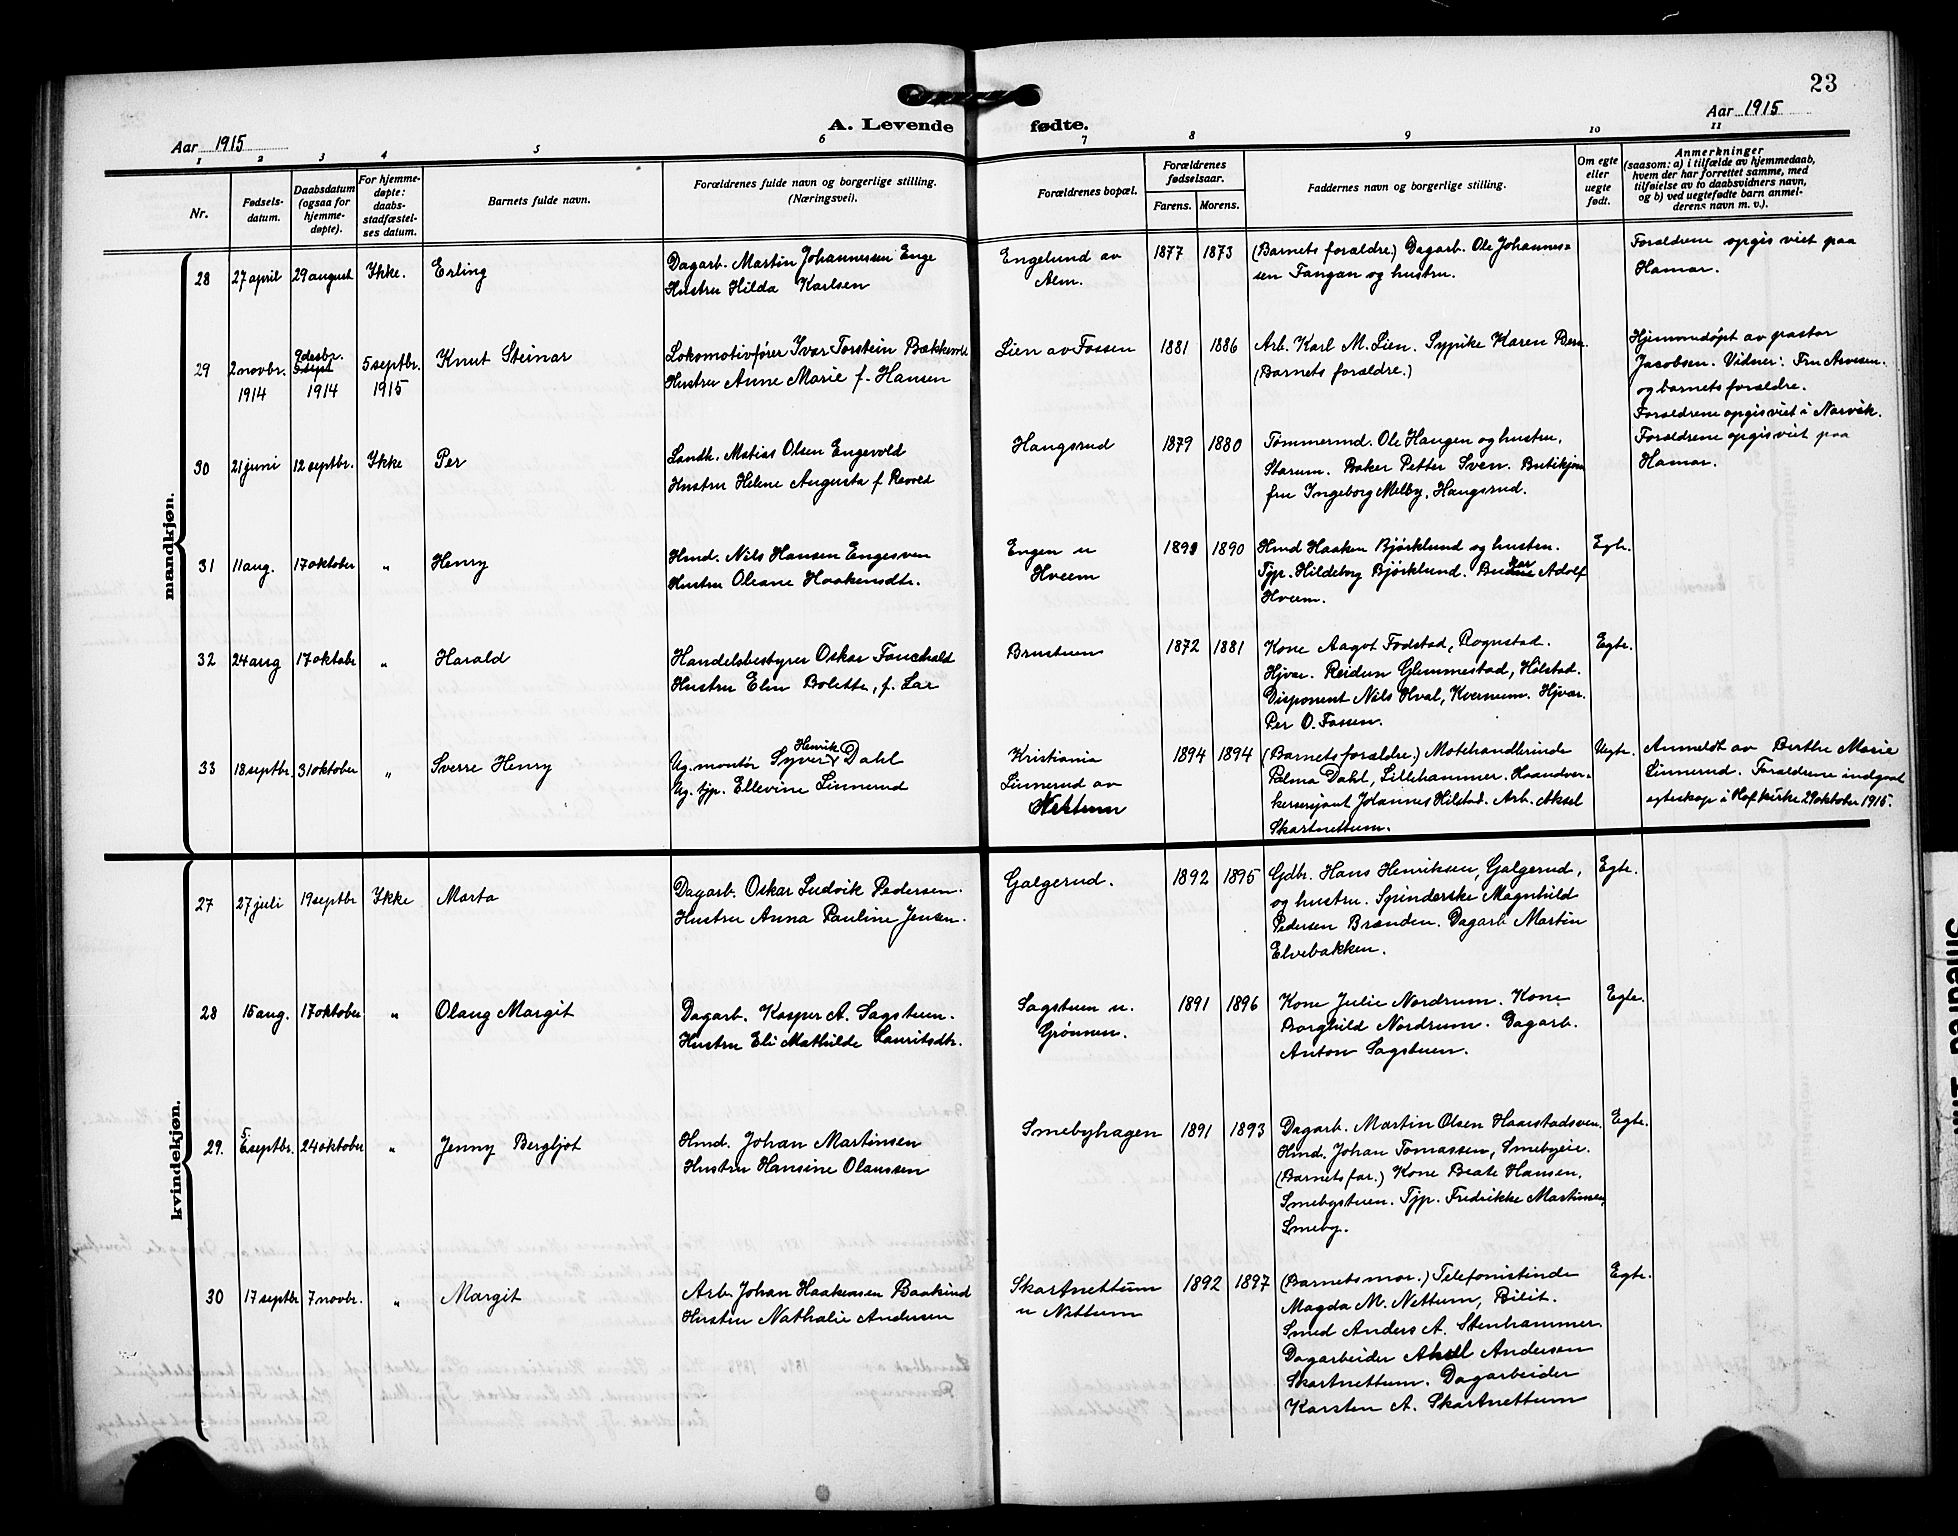 23
Aar 1915
A. Levende fødte.
Aar 1915
1 2 3 4 5 6 7 8 9 10 11
Nr.
Fødsels-
datum.
Daabsdatum
(ogsaa for
hjemme-
døpte).
For hjemme-
døpte:
daabs-
stadfæstel-
ses datum.
Barnets fulde navn.
Forældrenes fulde navn og borgerlige stilling.
(Næringsvei).
Forældrenes bopæl.
Forældrenes
fødselsaar.
Farens. Morens.
Faddernes navn og borgerlige stilling.
Om egte
eller
uegte
født.
Anmerkninger
(saasom: a) i tilfælde av hjemmedaab,
hvem der har forrettet samme, med
tilføielse av to daabsvidners navn,
og b) ved uegtefødte barn anmel-
derens navn m. v.).
mandkjøn.
28 27 april 29 august Ikke. Erling
Dagarb. Martin Johannessen Enge
Hustru Hilda Karlsen
Engelund av
Alm.
1877 1873
(Barnets forældre) Dagarb. Ole Johannes=
sen Tangan og hustru.
Forældrene opgis viet paa
Hamar.
29 2 novbr. 1914
9 desbr.
5 sept
1914
5 septbr.
1915
Knut Steinar
Lokomotivfører Ivar Torstein Bækkemel
Hustru Anne Marie f. Hansen
Lien av Fossen
1881 1886
Arb. Karl M. Lien. Sypike Karen Bern
(Barnets forældre.)
Hjemmedøpt av pastor
Jacobsen. Vidner: Fru Arvesen.
og barnets forældre.
Forældrene opgis viet i Narvik.
30 21 juni 12 septbr. Ikke Per
Landh. Matias Olsen Engevold
Hustru Helene Augusta f. Revold
Haugsrud
1879 1880
Tømmermd. Ole Haugen og hustru,
Starum. Baker Petter Sven. Butikjom
fru Ingeborg Melby, Haugsrud.
Forældrene opgis viet paa
Hamar.
31 11 aug. 17 oktober " Henry
Hmd. Nils Hansen Engesven
Hustru Oleane Haakensdtr.
Engen u
Hveem
1893 1890
Hmd Haaken Bjørklund og hustru.
Tjp. Hildeborg Bjørklund. Adolf
Hveem.
Egte.
32 24 aug 17 oktobr " Harald
Handelsbestyrer Oskar Fauchald
Hustru Elin Bolette, f. Lar
Brustuen
1872 1881
Kone Aagot Fodstad, Rognstad.
Hjvar. Reidun Glemmestad, Hølstad.
Disponent Nils Hval, Kvernum. Hjvar.
Per O. Fossen.
Egte.
33 18 septbr. 31 oktober " Sverre Henry
Ug. montør Syver Henrik Dahl
Ug. tjp. Ellevine Linnerud
Kristiania
Linnerud av
Nettum
1894 1894
(Barnets forældre.) Motehandlerinde
Palma Dahl, Lillehammer. Haandver-
kersersjant Johannes Hilstad. Arb. Aksel
Skartnettum.
Uegte.
Anmeldt av Berthe Marie
Linnerud. Forældrene indgaat
egteskap i Hof kirke 29 oktober 1915.
kvindekjøn.
27 27 juli 19 septbr Ikke Marta
Dagarb. Oskar Ludvik Pedersen.
Hustru Anna Pauline Jensen.
Galgerud.
1892 1895
Gdbr. Hans Henriksen, Galgerud,
og hustru. Spinderske Magnhild
Pedersen Brænden. Dagarb Martin
Elvebakken.
Egte.
28 15 aug. 17 oktober " Olaug Margit
Dagarb. Kasper A. Sagstuen.
Hustru Eli Mathilde Lauritsdtr.
Sagstuen u.
Grønnen.
1891 1896
Kone Julie Nordrum. Kone
Borghild Nordrum. Dagarb.
Anton Sagstuen.
Egte.
29. 5 septbr. 24 oktober " Jenny Bergljot
Hmd. Johan Martinsen
Hustru Hansine Olaussen
Smebyhagen
1891 1893
Dagarb. Martin Olsen Haarstadsven.
Hmd. Johan Tomassen, Smebyeie.
(Barnets far.) Kone Beate Hansen.
Smebystuen. Tjp. Fredrikke Martinsen,
Smeby.
Egte.
30 17 septbr 7 novbr. " Margit
Arb. Johan Haakensen Baakind
Hustru Nathalie Andersen
Skartnettum
u Nettum
1892 1897
(Barnets mor.) Telefonistinde
Magda M. Nettum, Bilit.
Smed Anders A. Stenhammer.
Dagarbeider Aksel Andersen
Skartnettum. Dagarbeider
Karsten A. Skartnettum
Egte.